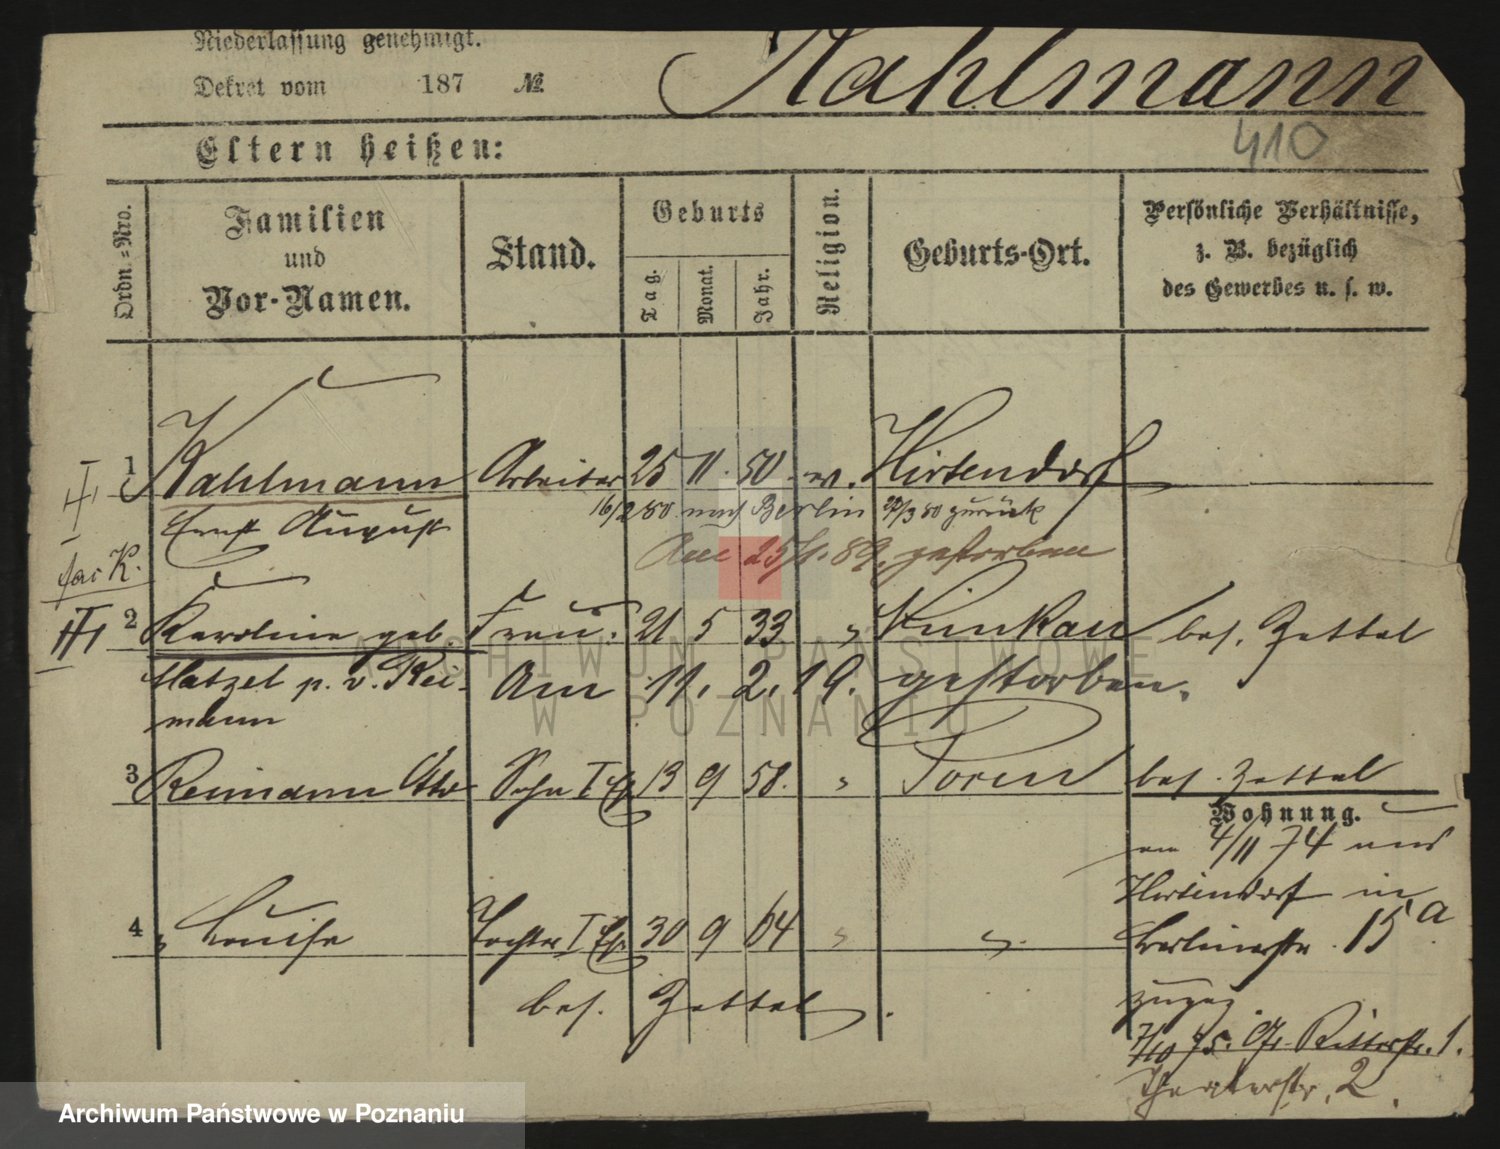 Niederlassung genehmigt.
Dekret vom 187 №
Kahlmann
410
Eltern heißen:
Ordn.-Nro.
Familien und Vor-Namen.
Stand.
Geburts
Tag. Monat. Jahr.
Religion.
Geburts-Ort.
Persönliche Verhältnisse,
z. B. bezüglich
des Gewerbes u. s. w.
1 Kahlmann Arbeiter 25 11. 50. ev. Hirtendorf
Ernst August 16/2 80 nach Berlin 22/3 80 zurück
Am 25/1. 89. gestorben
2 Karoline geb. Frau. 21 5 33 " Kunkau bes. Zettel
Matzel p. v. Rei-
mann
Am 11. 2. 19. gestorben.
3 Reimann Otto Sohn I Eh. 13 9 58. " Posen bes. Zettel
Wohnung.
am 4/11 74 aus
Hirtendorf in
4 " Louise Tochter I Eh. 30 9 64 " " Berlinerstr. 15a
bes. Zettel.
zugez
7/10 75. Gr. Ritterstr. 1.
Theaterstr. 2.
ARCHIWUM PAŃSTWOWE
W POZNANIU
Archiwum Państwowe w Poznaniu